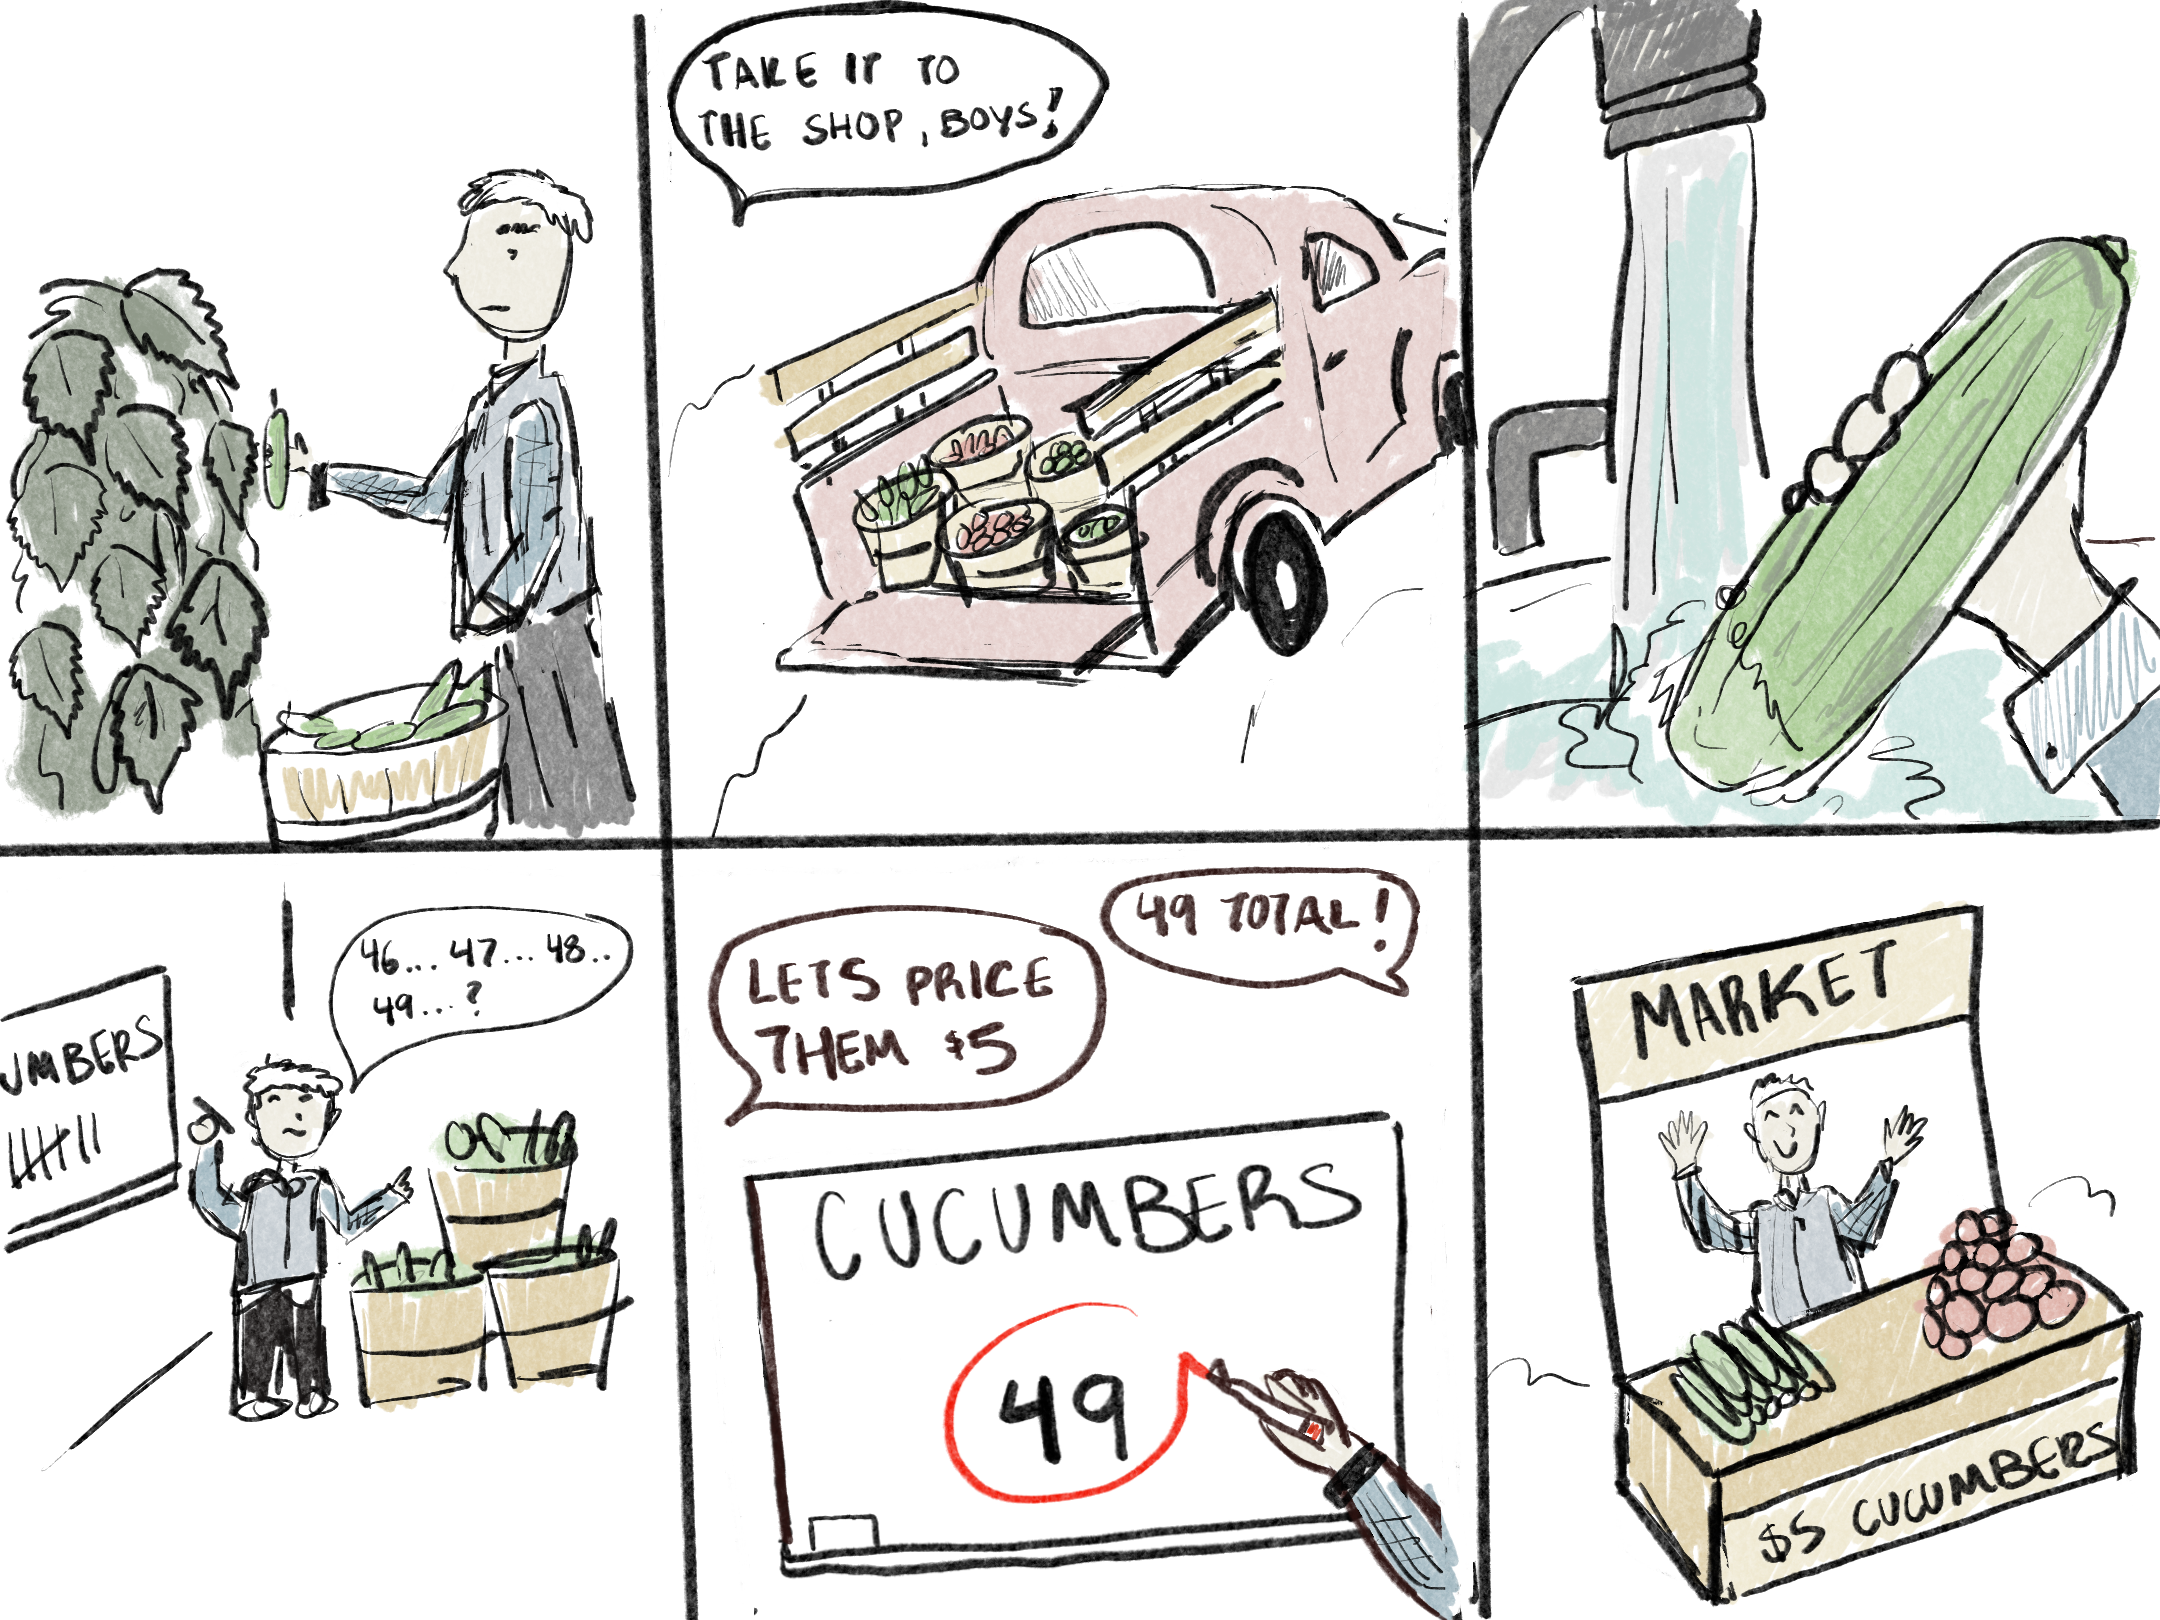 TAKE IT TO
THE SHOP, BOYS!
UMBERS
46... 47... 48..
49...?
LETS PRICE
THEM $5
49 TOTAL!
CUCUMBERS
49
MARKET
$5 CUCUMBERS